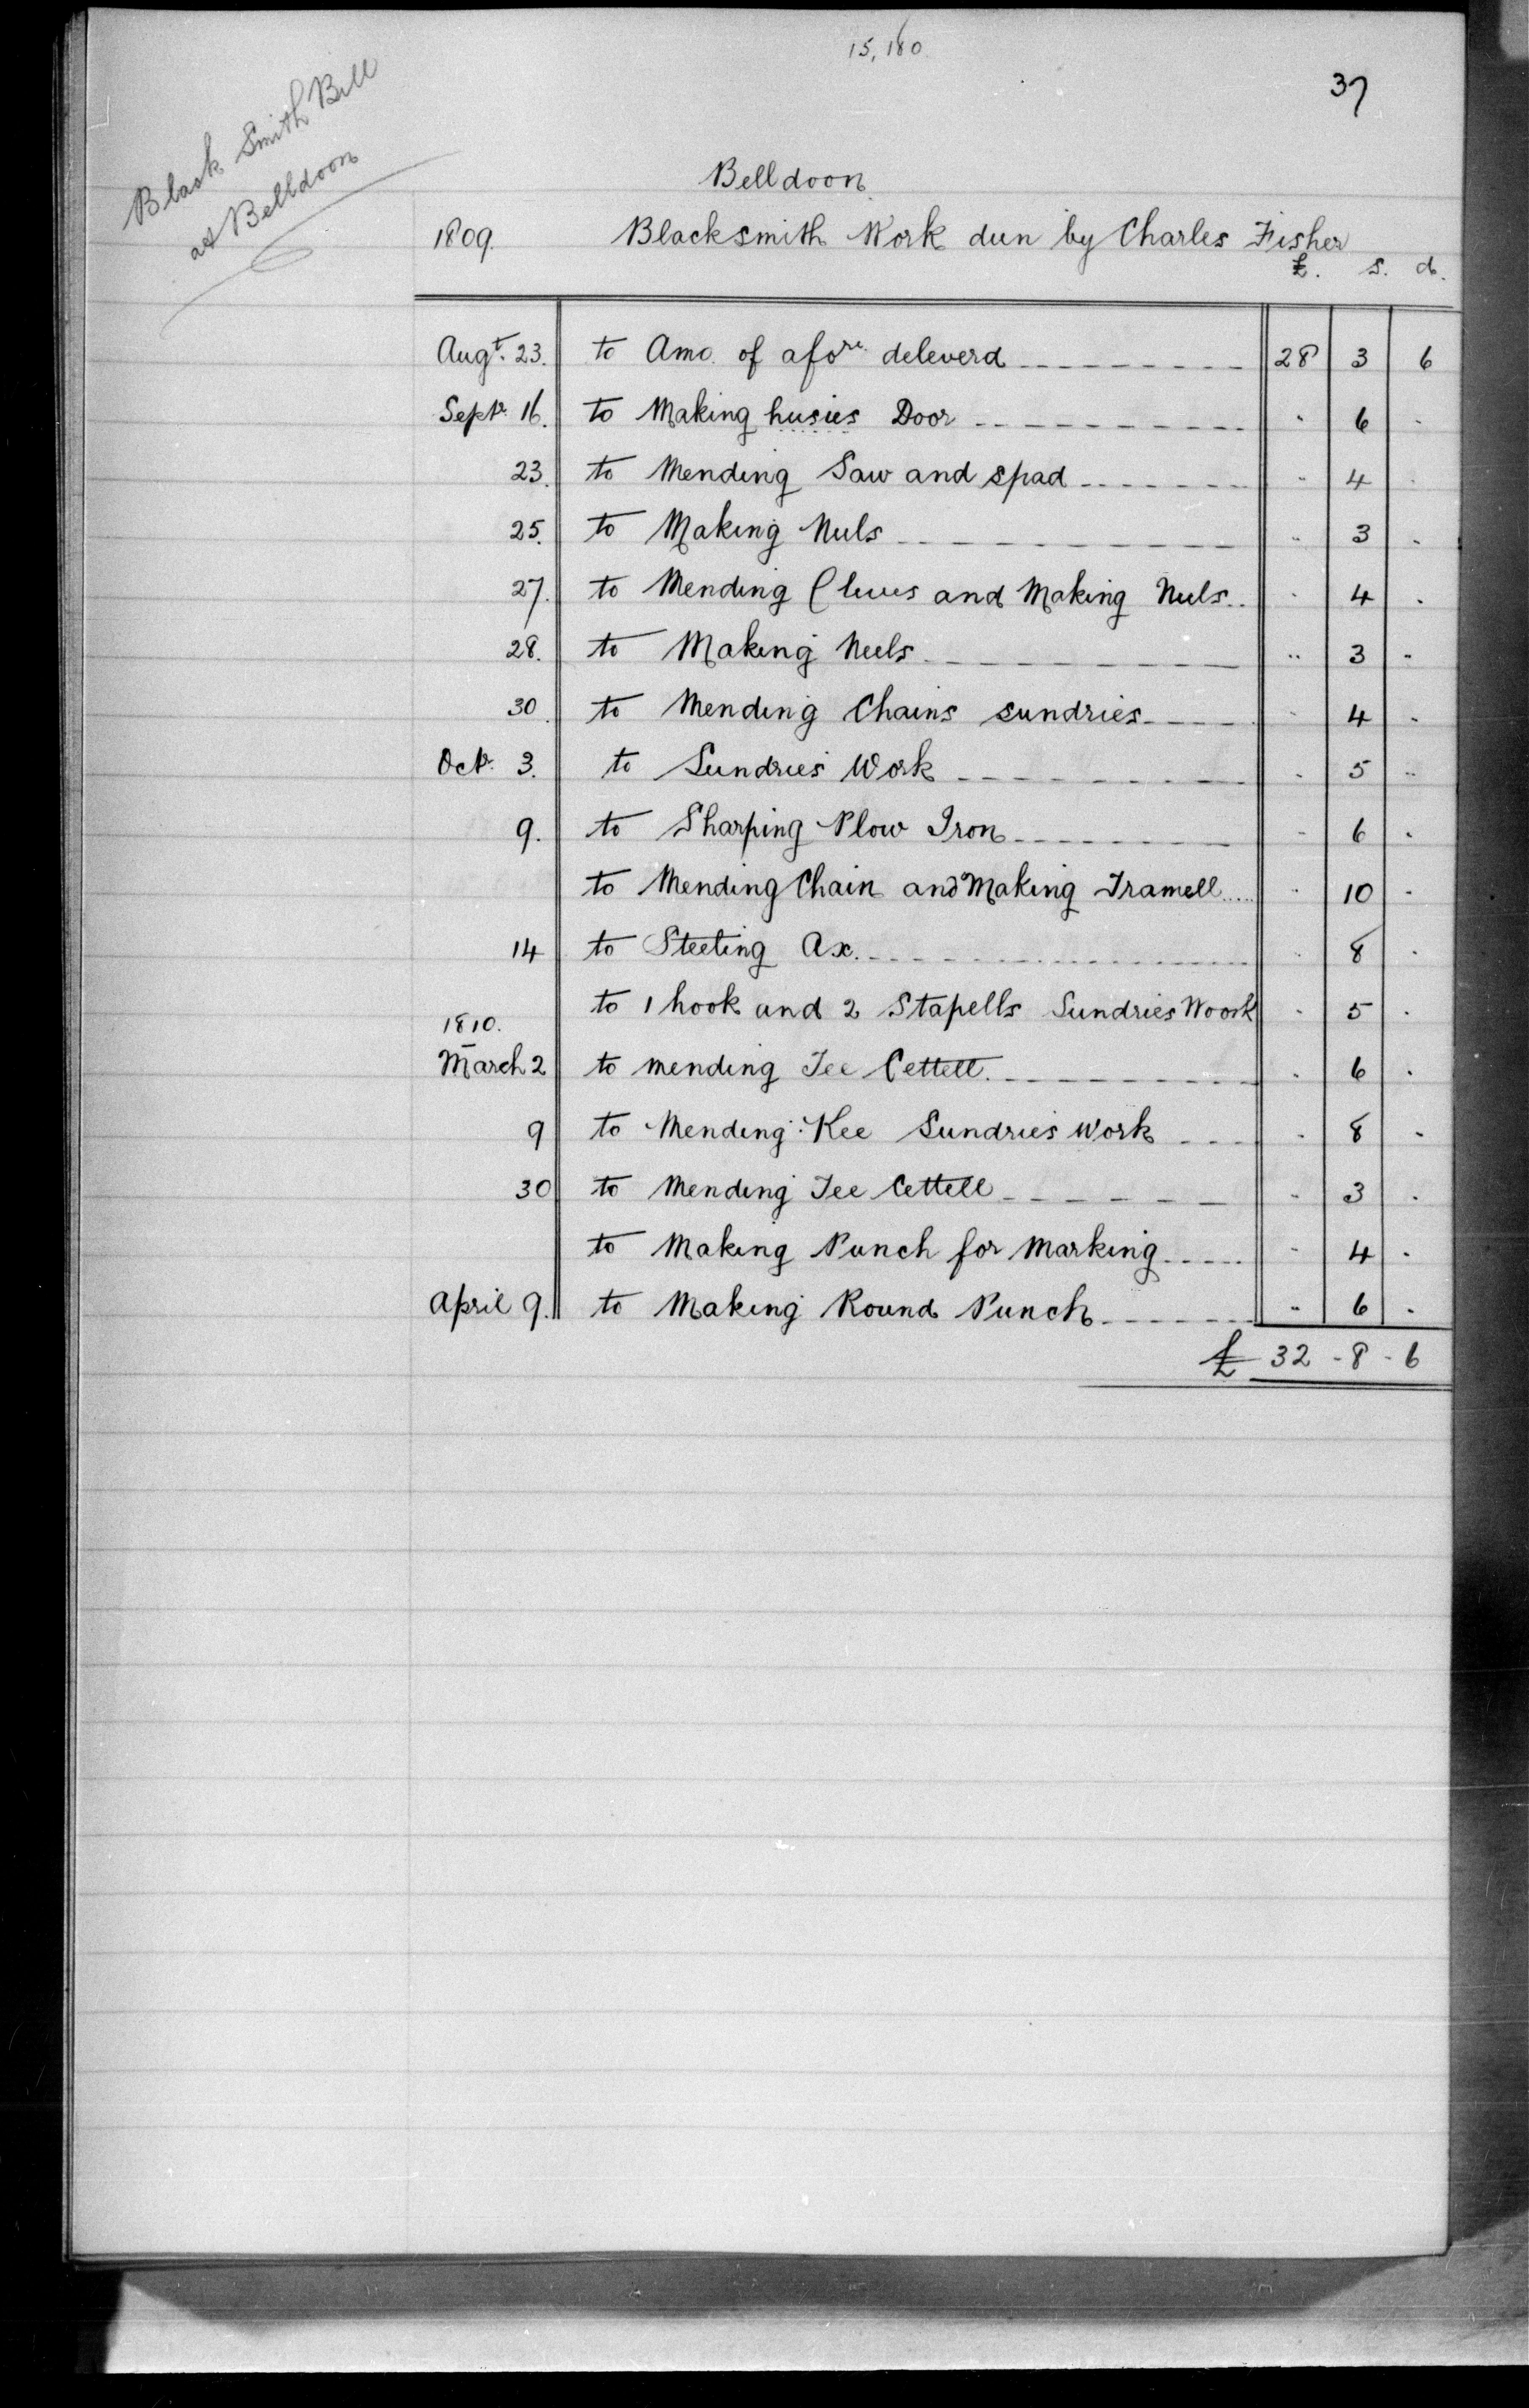 15,180
37
Black Smith Bill
at Belldoon
Belldoon
1809. Blacksmith Work dun by Charles Fisher
£. s. d.
Augt. 23. to Amo. of afore deleverd 28 3 6
Septr. 16. to Making husies Door " 6 "
23. to Mending Saw and spad " 4 "
25. to Making Nuls " 3 "
27. to Mending Clives and Making Nuls " 4 "
28. to Making Neels " 3 "
30. to Mending Chains sundries " 4 "
Octr. 3. to Sundries Work " 5 "
9. to Sharping Plow Iron " 6 "
to Mending Chain and Making Tramell " 10 "
14 to Steeling Ax. " 8 "
to 1 hook and 2 Stapells Sundries Woork " 5 "
1810.
March 2 to mending Tee Cettell. " 6 "
9 to Mending Kee Sundries Work " 8 "
30 to Mending Tee Cettell " 3 "
to Making Punch for Marking " 4 "
April 9. to Making Round Punch " 6 "
£ 32 - 8 - 6